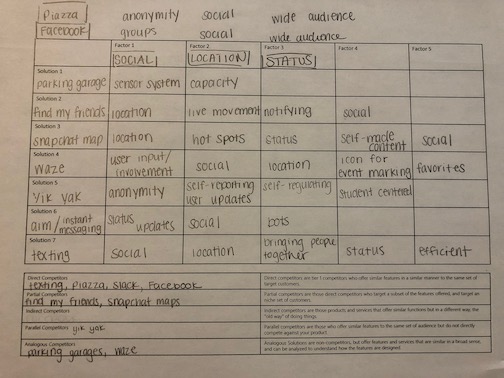 Piazza anonymity social wide audience
Facebook groups social wide audience
Factor 1 Factor 2 Factor 3 Factor 4 Factor 5
SOCIAL LOCATION STATUS
Solution 1
parking garage sensor system capacity
Solution 2
find my friends location live movement notifying social
Solution 3
snapchat map location hot spots status self-made content social
Solution 4
waze user input/ involvement social location icon for event marking favorites
Solution 5
yik yak anonymity self-reporting user updates self-regulating student centered
Solution 6
aim/instant messaging status updates social bots
Solution 7
texting social location bringing people together status efficient
Direct Competitors
texting, Piazza, Slack, Facebook
Direct competitors are tier 1 competitors who offer similar features in a similar manner to the same set of target customers.
Partial Competitors
find my friends, snapchat maps
Partial competitors are those direct competitors who target a subset of the features offered, and target an niche set of customers.
Indirect Competitors
Indirect competitors are products and services that offer similar functions but in a different way, the "old way" of doing things.
Parallel Competitors yik yak
Parallel Competitors are those who offer similar features to the same set of audience but do not directly compete against your product.
Analogous Competitors
parking garages, waze
Analogous Solutions are non-competitors, but offer features and services that are similar in a broad sense, and can be analyzed to understand how the features are designed.